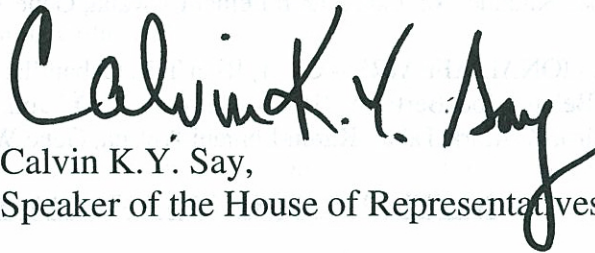 Calvin K.Y. Say
Calvin K.Y. Say,
Speaker of the House of Representatives